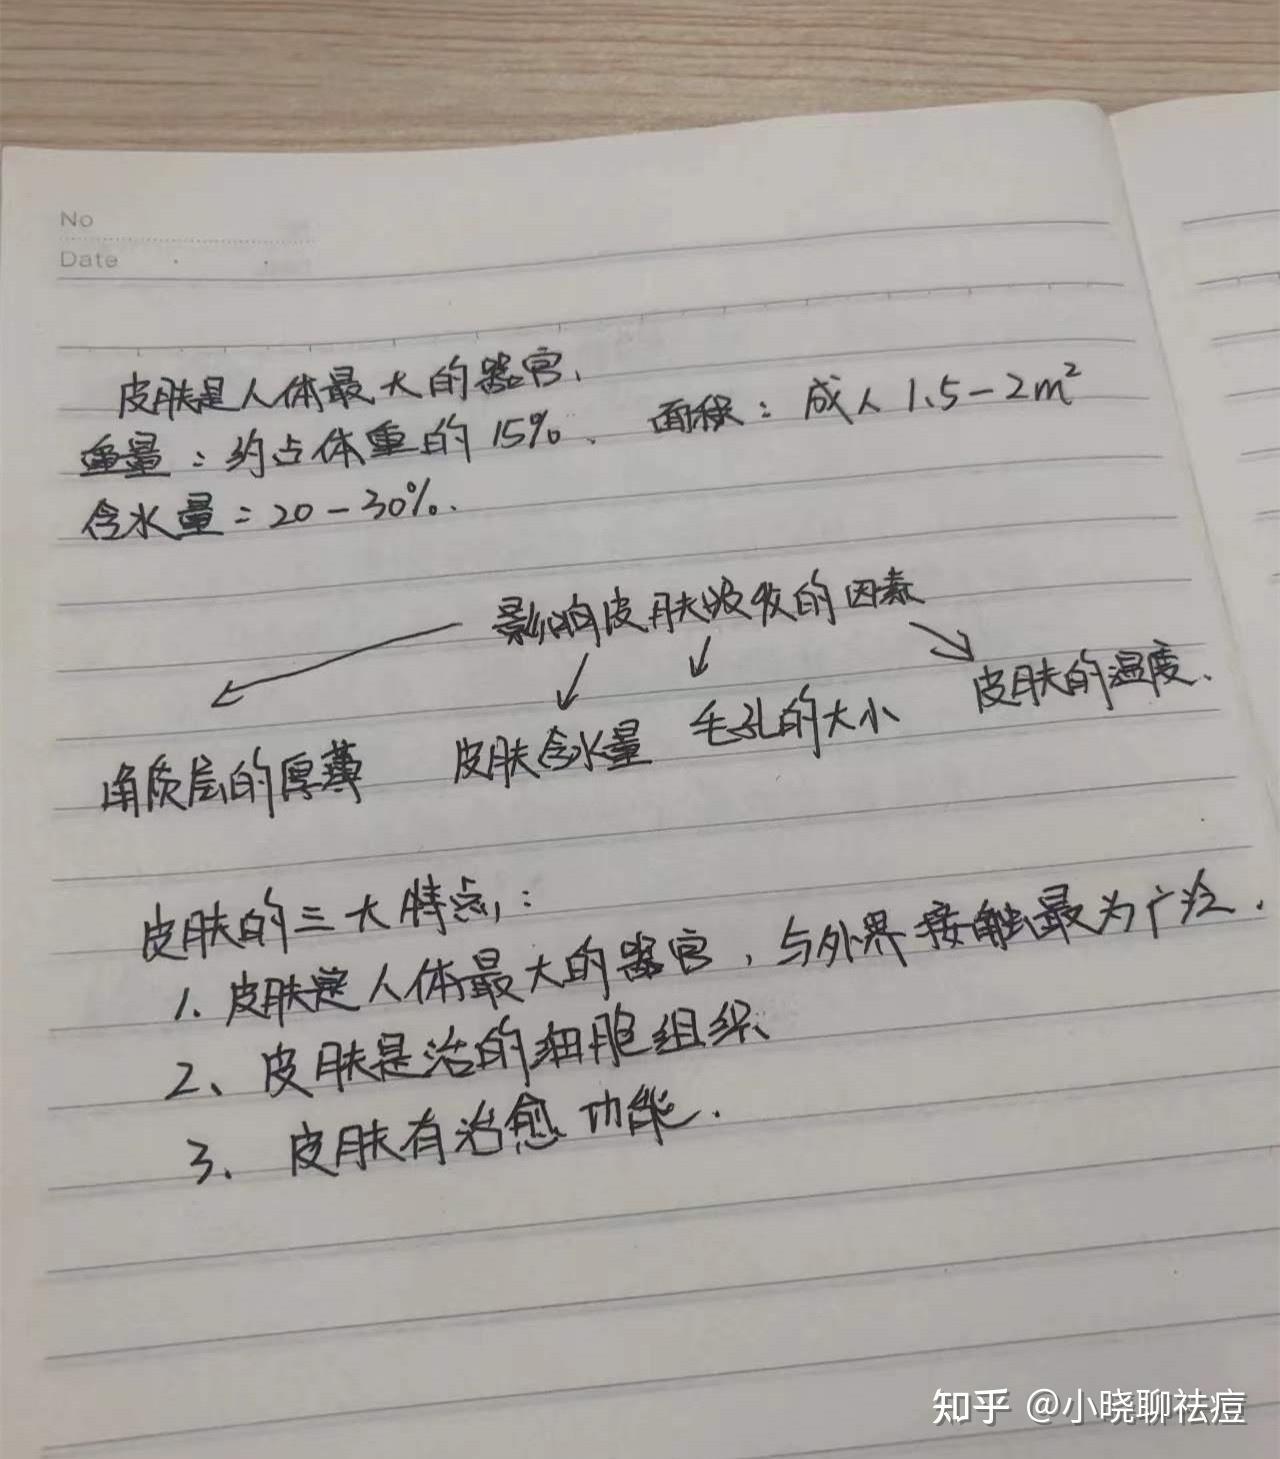 No
Date
皮肤是人体最大的器官、
重量：约占体重的15%、 面积：成人1.5-2m²
含水量：20-30%.
影响皮肤吸收的因素
角质层的厚薄 皮肤含水量 毛孔的大小 皮肤的温度、
皮肤的三大特点：
1、皮肤是人体最大的器官，与外界接触最为广泛.
2、皮肤是活的细胞组织、
3、皮肤有治愈功能.
知乎 @小晓聊祛痘